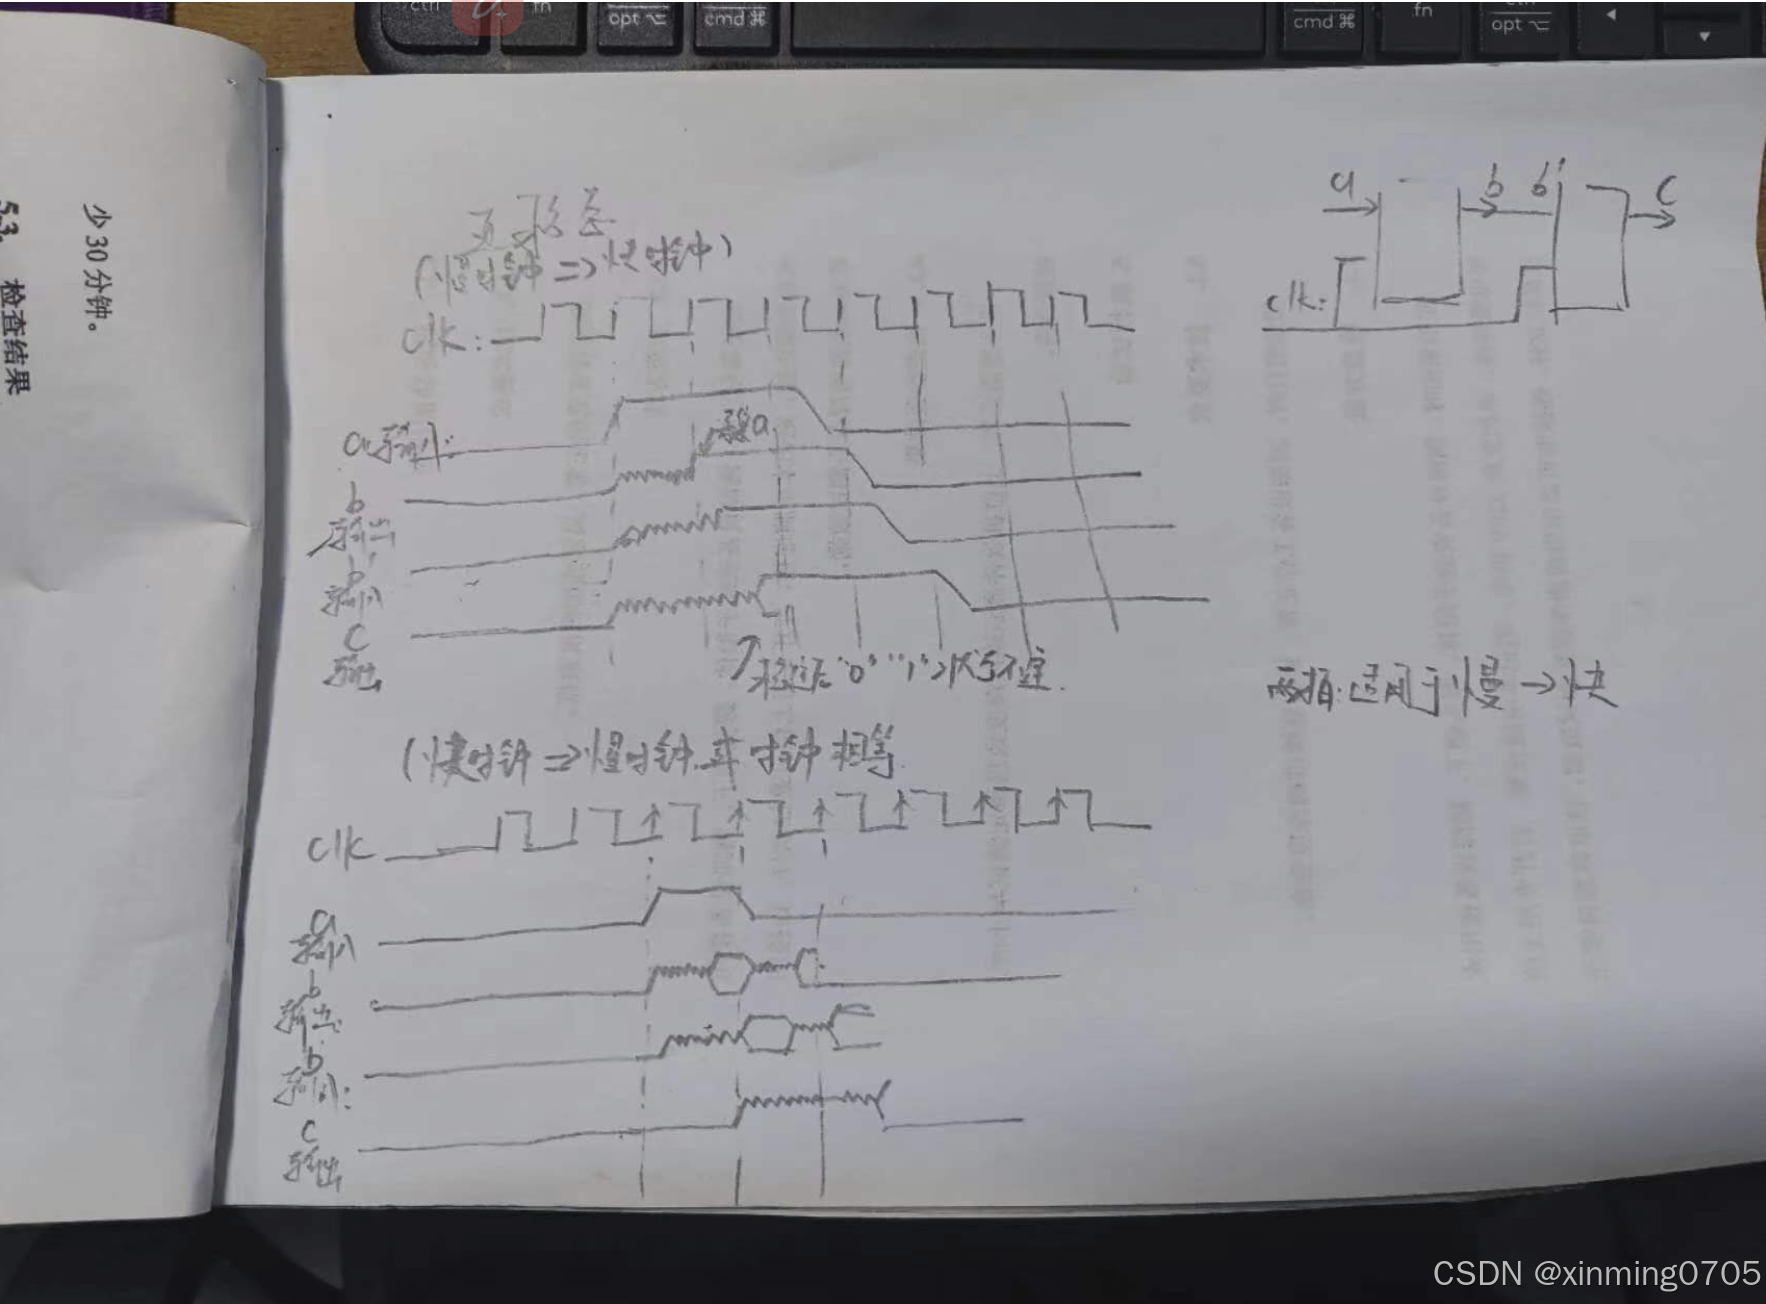 ctrl
fn
opt ⌥
cmd ⌘
cmd ⌘
fn
ctrl
opt ⌥
少30分钟。
5.3. 检查结果
亚稳态
(慢时钟 => 快时钟)
clk:
a输入:
采a
b
输出
b
输入
c
输出
稳定后"0""1"状态不定.
a
b
b
c
clk:
两拍:适用于慢→快
(快时钟 => 慢时钟或时钟相等
clk
a
输入
b
输出:
b
输入:
c
输出
CSDN @xinming0705